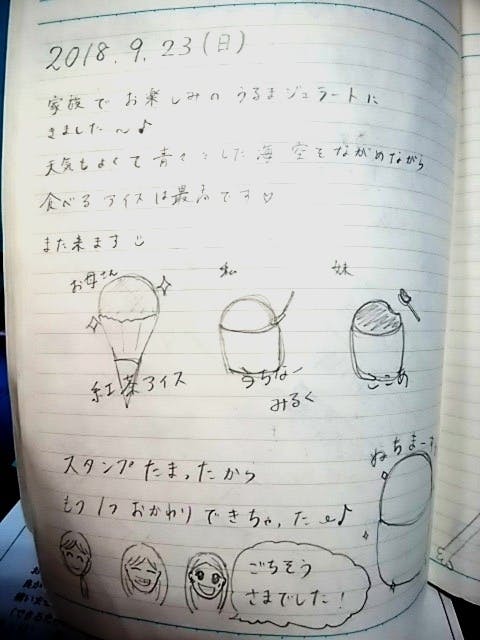 2018.9.23(日)
家族でお楽しみの うるまジェラートに
きました〜♪
天気もよくて青々とした海 空をながめながら
食べるアイスは最高です♡
また来ます
お母さん
私
妹
紅茶アイス
うちなー
みるく
スタンプたまったから
もう1つおかわりできちゃった〜♪
ごちそう
さまでした!